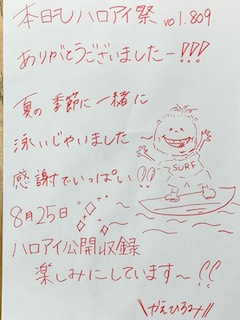 本日しハロアイ祭 vol.809
ありがとうございましたー!!!
夏の季節に一緒に
泳いじゃいました〜
感謝でいっぱい!!
SURF
8月25日
ハロアイ公開収録
楽しみにしています〜!!
\かえひろみ/